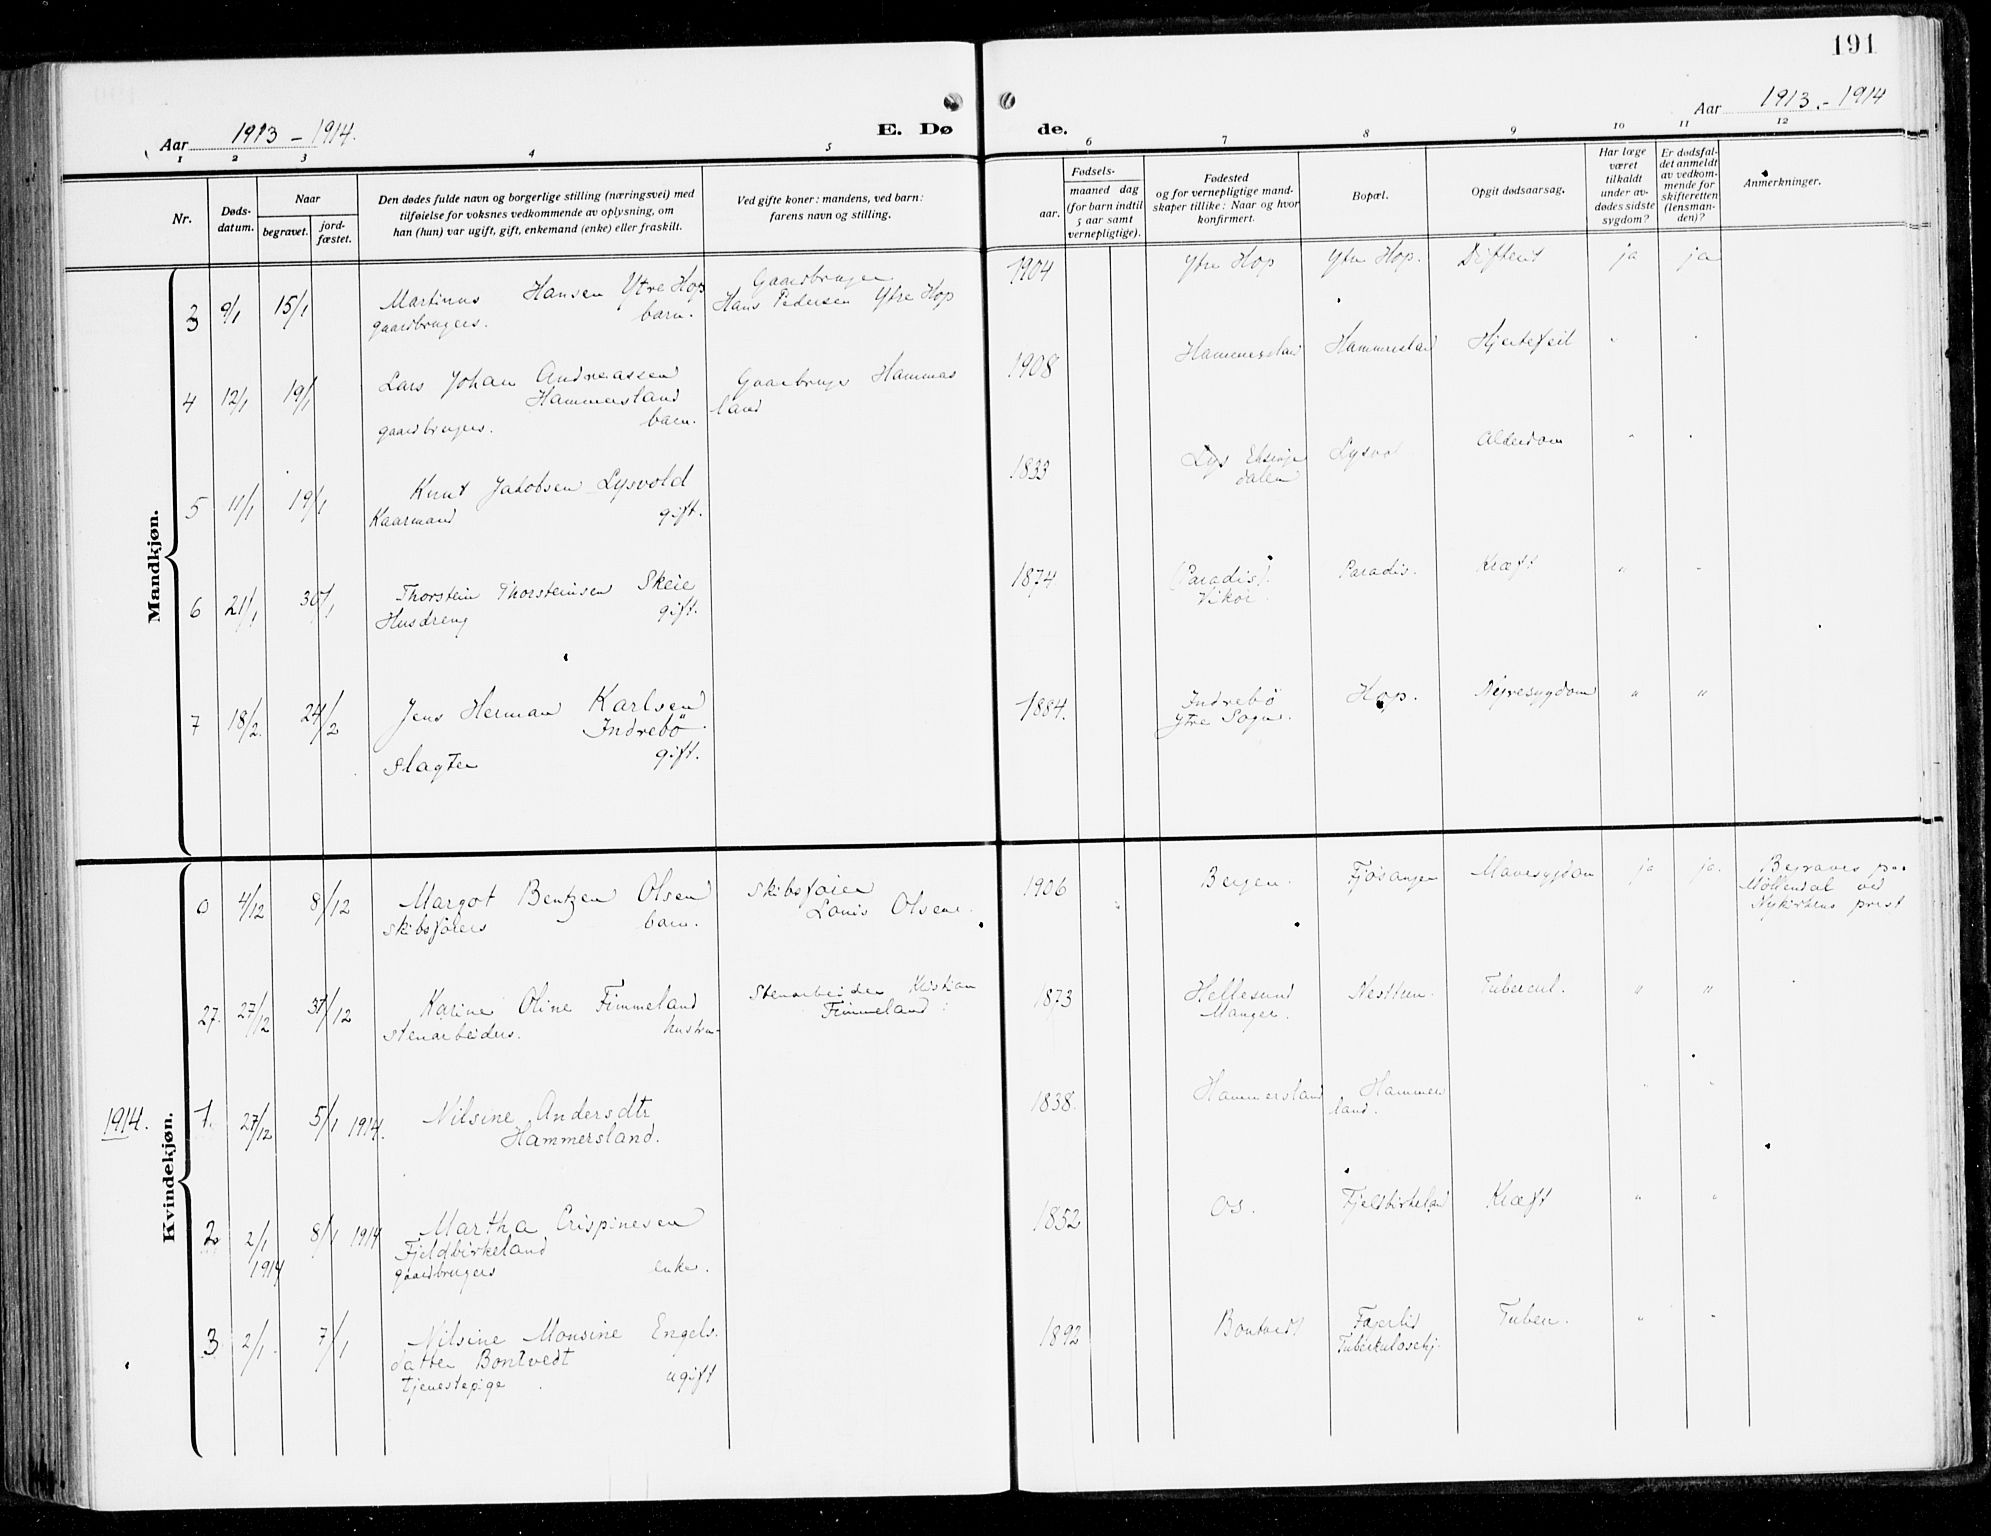 191
Aar 1913 – 1914.
E. Dø de.
Aar 1913. - 1914
1 2 3 4 5 6 7 8 9 10 11 12
Nr.
Døds-datum.
Naar
begravet.
jord-fæstet.
Den dødes fulde navn og borgerlige stilling (næringsvei) med
tilføielse for voksnes vedkommende av oplysning, om
han (hun) var ugift, gift, enkemand (enke) eller fraskilt.
Ved gifte koner: mandens, ved barn:
farens navn og stilling.
Fødsels-
aar.
maaned dag
(for barn indtil
5 aar samt
vernepligtige).
Fødested
og for vernepligtige mand-
skaper tillike: Naar og hvor
konfirmert.
Bopæl.
Opgit dødsaarsag.
Har læge
været
tilkaldt
under av-
dødes sidste
sygdom?
Er dødsfal-
det anmeldt
av vedkom-
mende for
skifteretten
(lensman-
den)?
Anmerkninger.
Mandkjøn.
3 9/1 15/1 Martinus Hansen Ytre Hop Gaardbruger 1904 Ytre Hop Ytre Hop. Difterit ja ja
gaardbrugers. barn. Hans Pedersen Ytre Hop
4 12/1 19/1 Lars Johan Andreassen Gaardbruger Hammers 1908 Hammersland Hammersland Hjertefeil " "
Hammersland land
gaardbrugers. barn.
5 11/1 19/1 Knut Jakobsen Lysvold 1833 Eksinge Alderdom " "
Kaarmand gift. dalen
6 21/1 30/1 Thorstein Thorsteinsen Skeie 1874 (Paradis). Paradis. Kræft " "
Husdreng gift. Vikör.
7 18/2. 24/2 Jens Herman Karlsen 1884. Indrebö Hop. Nyresygdom " "
Indrebö Ytre Sogn.
Slagter gift.
Kvindekjøn.
0 4/12 8/12 Margot Bentzen Olsen Skibsfører 1906 Bergen. Fjösanger Mavesygdom ja ja. Begraves paa
skibsførers barn. Louis Olsen. Möllendal ved
Nykirkens prest
27. 27/12 31/12 Karine Oline Fimmeland Stenarbeider Kristian 1873 Hellesund Nesttun. Tubercul. " "
stenarbeiders. hustru Fimmeland. Manger.
1914. 1. 27/12 5/1 1914. Nilsine Andersdtr 1838. Hammersland Hammers " "
Hammersland. land.
2 2/1 8/1 1914 Martha Crispinesen 1852 Os. Fjeldbirkeland Kræft " "
1914 Fjeldbirkeland
gaardbrugers enke.
3 2/1. 7/1 Nilsine Monsine Engels. 1892 Bontvedt Tuber. " "
datter Bontvedt Tuberkulosehj.
tjenestepige ugift